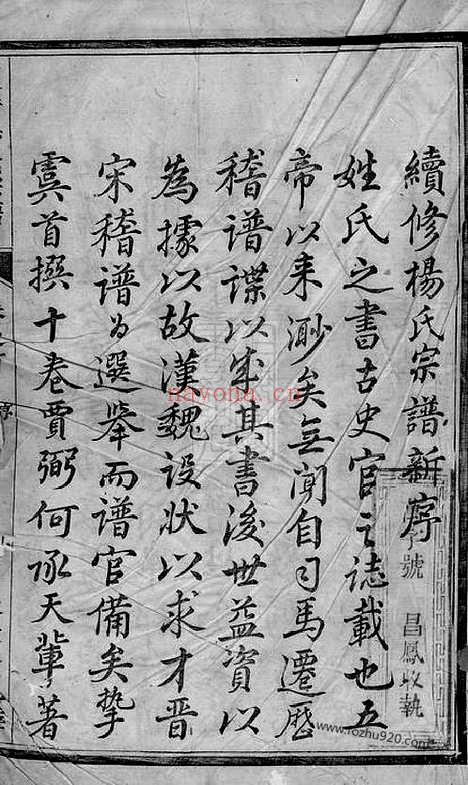 續修楊氏宗譜新序
姓氏之書古史官之誌載也五
帝以来渺矣無聞自司馬遷歴
稽谱諜以成其書後世益資以
為據以故漢魏设狀以求才晋
宋稽谱为選舉而谱官備矣挚
虞首撰十卷賈弼何承天輩著
號
昌鳳收執
nayona.cn
www.rozhu920.com